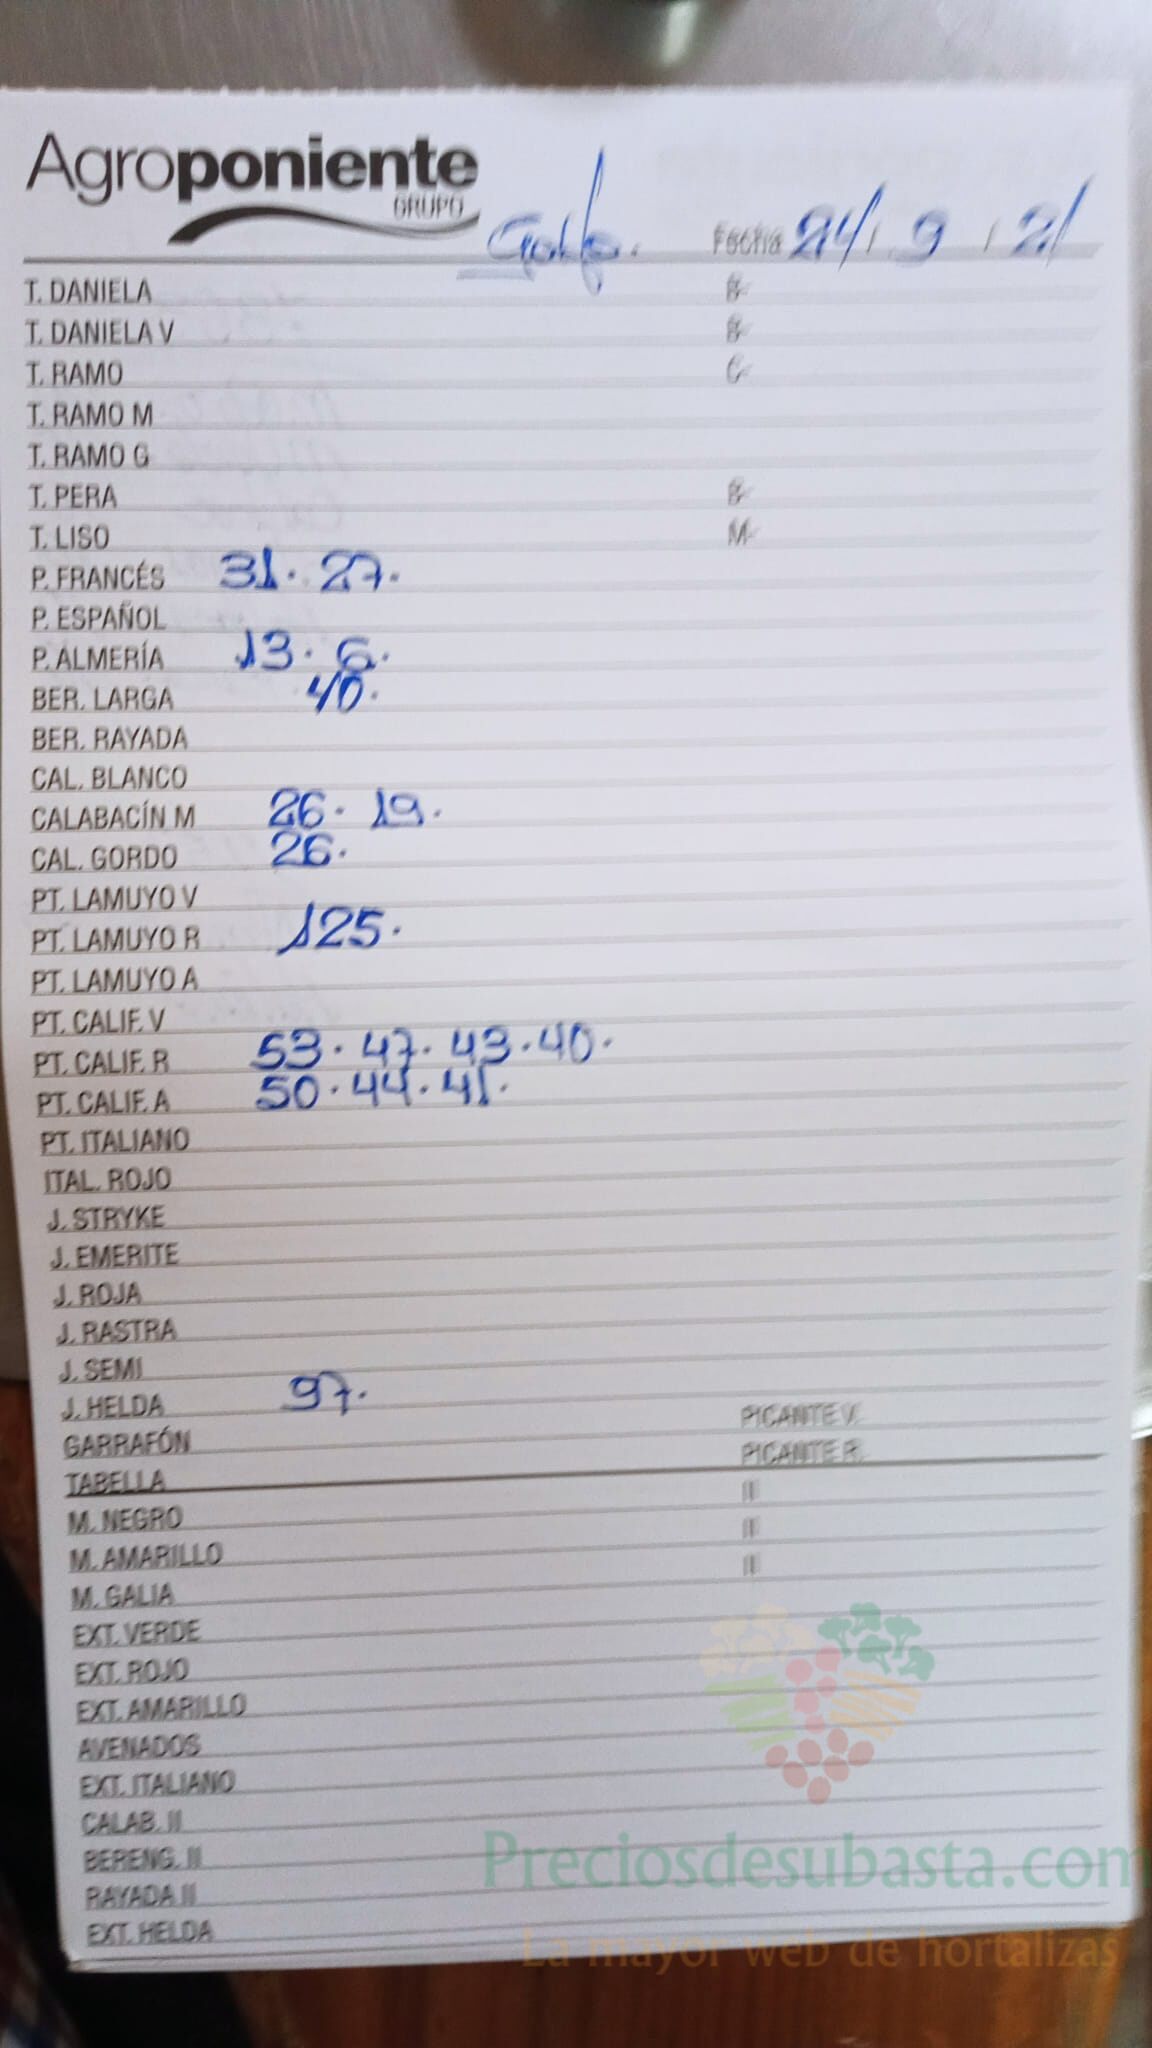 Agroponiente
GRUPO
Golfo. Fecha 24/9/21
T. DANIELA G
T. DANIELA V G
T. RAMO G
T. RAMO M
T. RAMO G
T. PERA G
T. LISO M
P. FRANCÉS 31. 27.
P. ESPAÑOL
P. ALMERÍA 13. 6.
BER. LARGA 40.
BER. RAYADA
CAL. BLANCO
CALABACÍN M 26. 19.
CAL. GORDO 26.
PT. LAMUYO V
PT. LAMUYO R 125.
PT. LAMUYO A
PT. CALIF. V
PT. CALIF. R 53. 47. 43. 40.
PT. CALIF. A 50. 44. 41.
PT. ITALIANO
ITAL. ROJO
J. STRYKE
J. EMERITE
J. ROJA
J. RASTRA
J. SEMI
J. HELDA 97.
GARRAFÓN PICANTE V.
TABELLA PICANTE R.
M. NEGRO II
M. AMARILLO II
M. GALIA II
EXT. VERDE
EXT. ROJO
EXT. AMARILLO
AVENADOS
EXT. ITALIANO
CALAB. II
BERENG. II
RAYADA II
EXT. HELDA
Preciosdesubasta.com
La mayor web de hortalizas